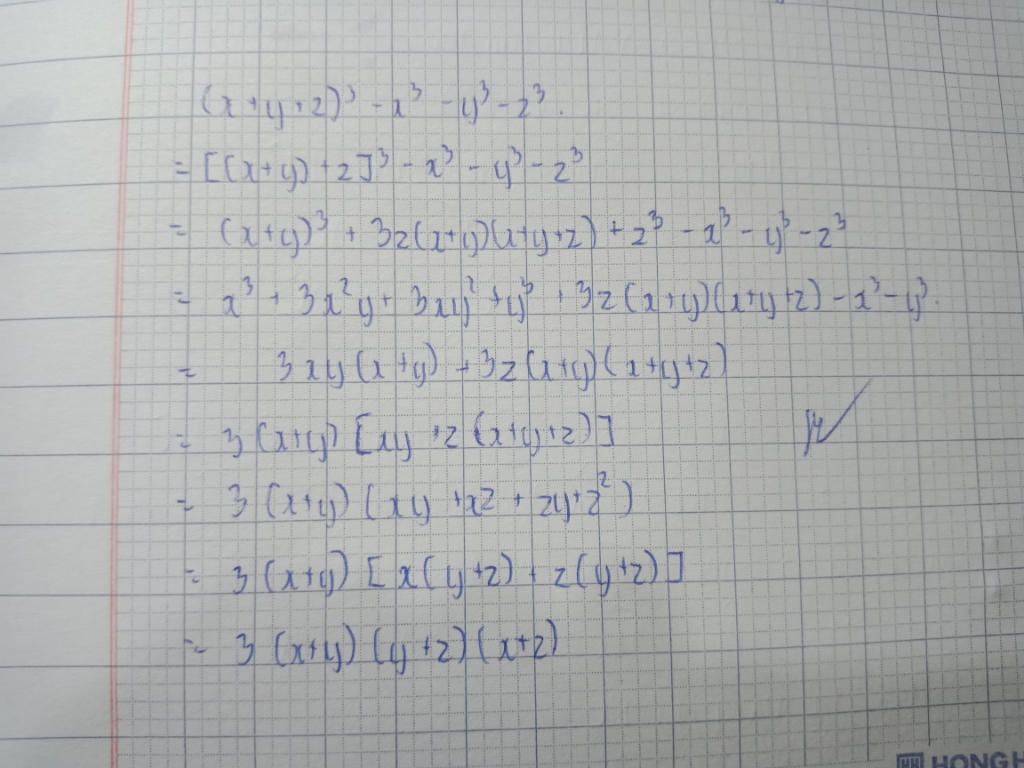 (x+y+z)³ - x³ - y³ - z³.
= [(x+y) + z]³ - x³ - y³ - z³
= (x+y)³ + 3z(x+y)(x+y+z) + z³ - x³ - y³ - z³
= x³ + 3x²y + 3xy² + y³ + 3z(x+y)(x+y+z) - x³ - y³.
= 3xy(x+y) + 3z(x+y)(x+y+z)
= 3(x+y)[xy + z(x+y+z)]
= 3(x+y)(xy + xz + zy + z²)
= 3(x+y)[x(y+z) + z(y+z)]
= 3(x+y)(y+z)(x+z)
HONG H